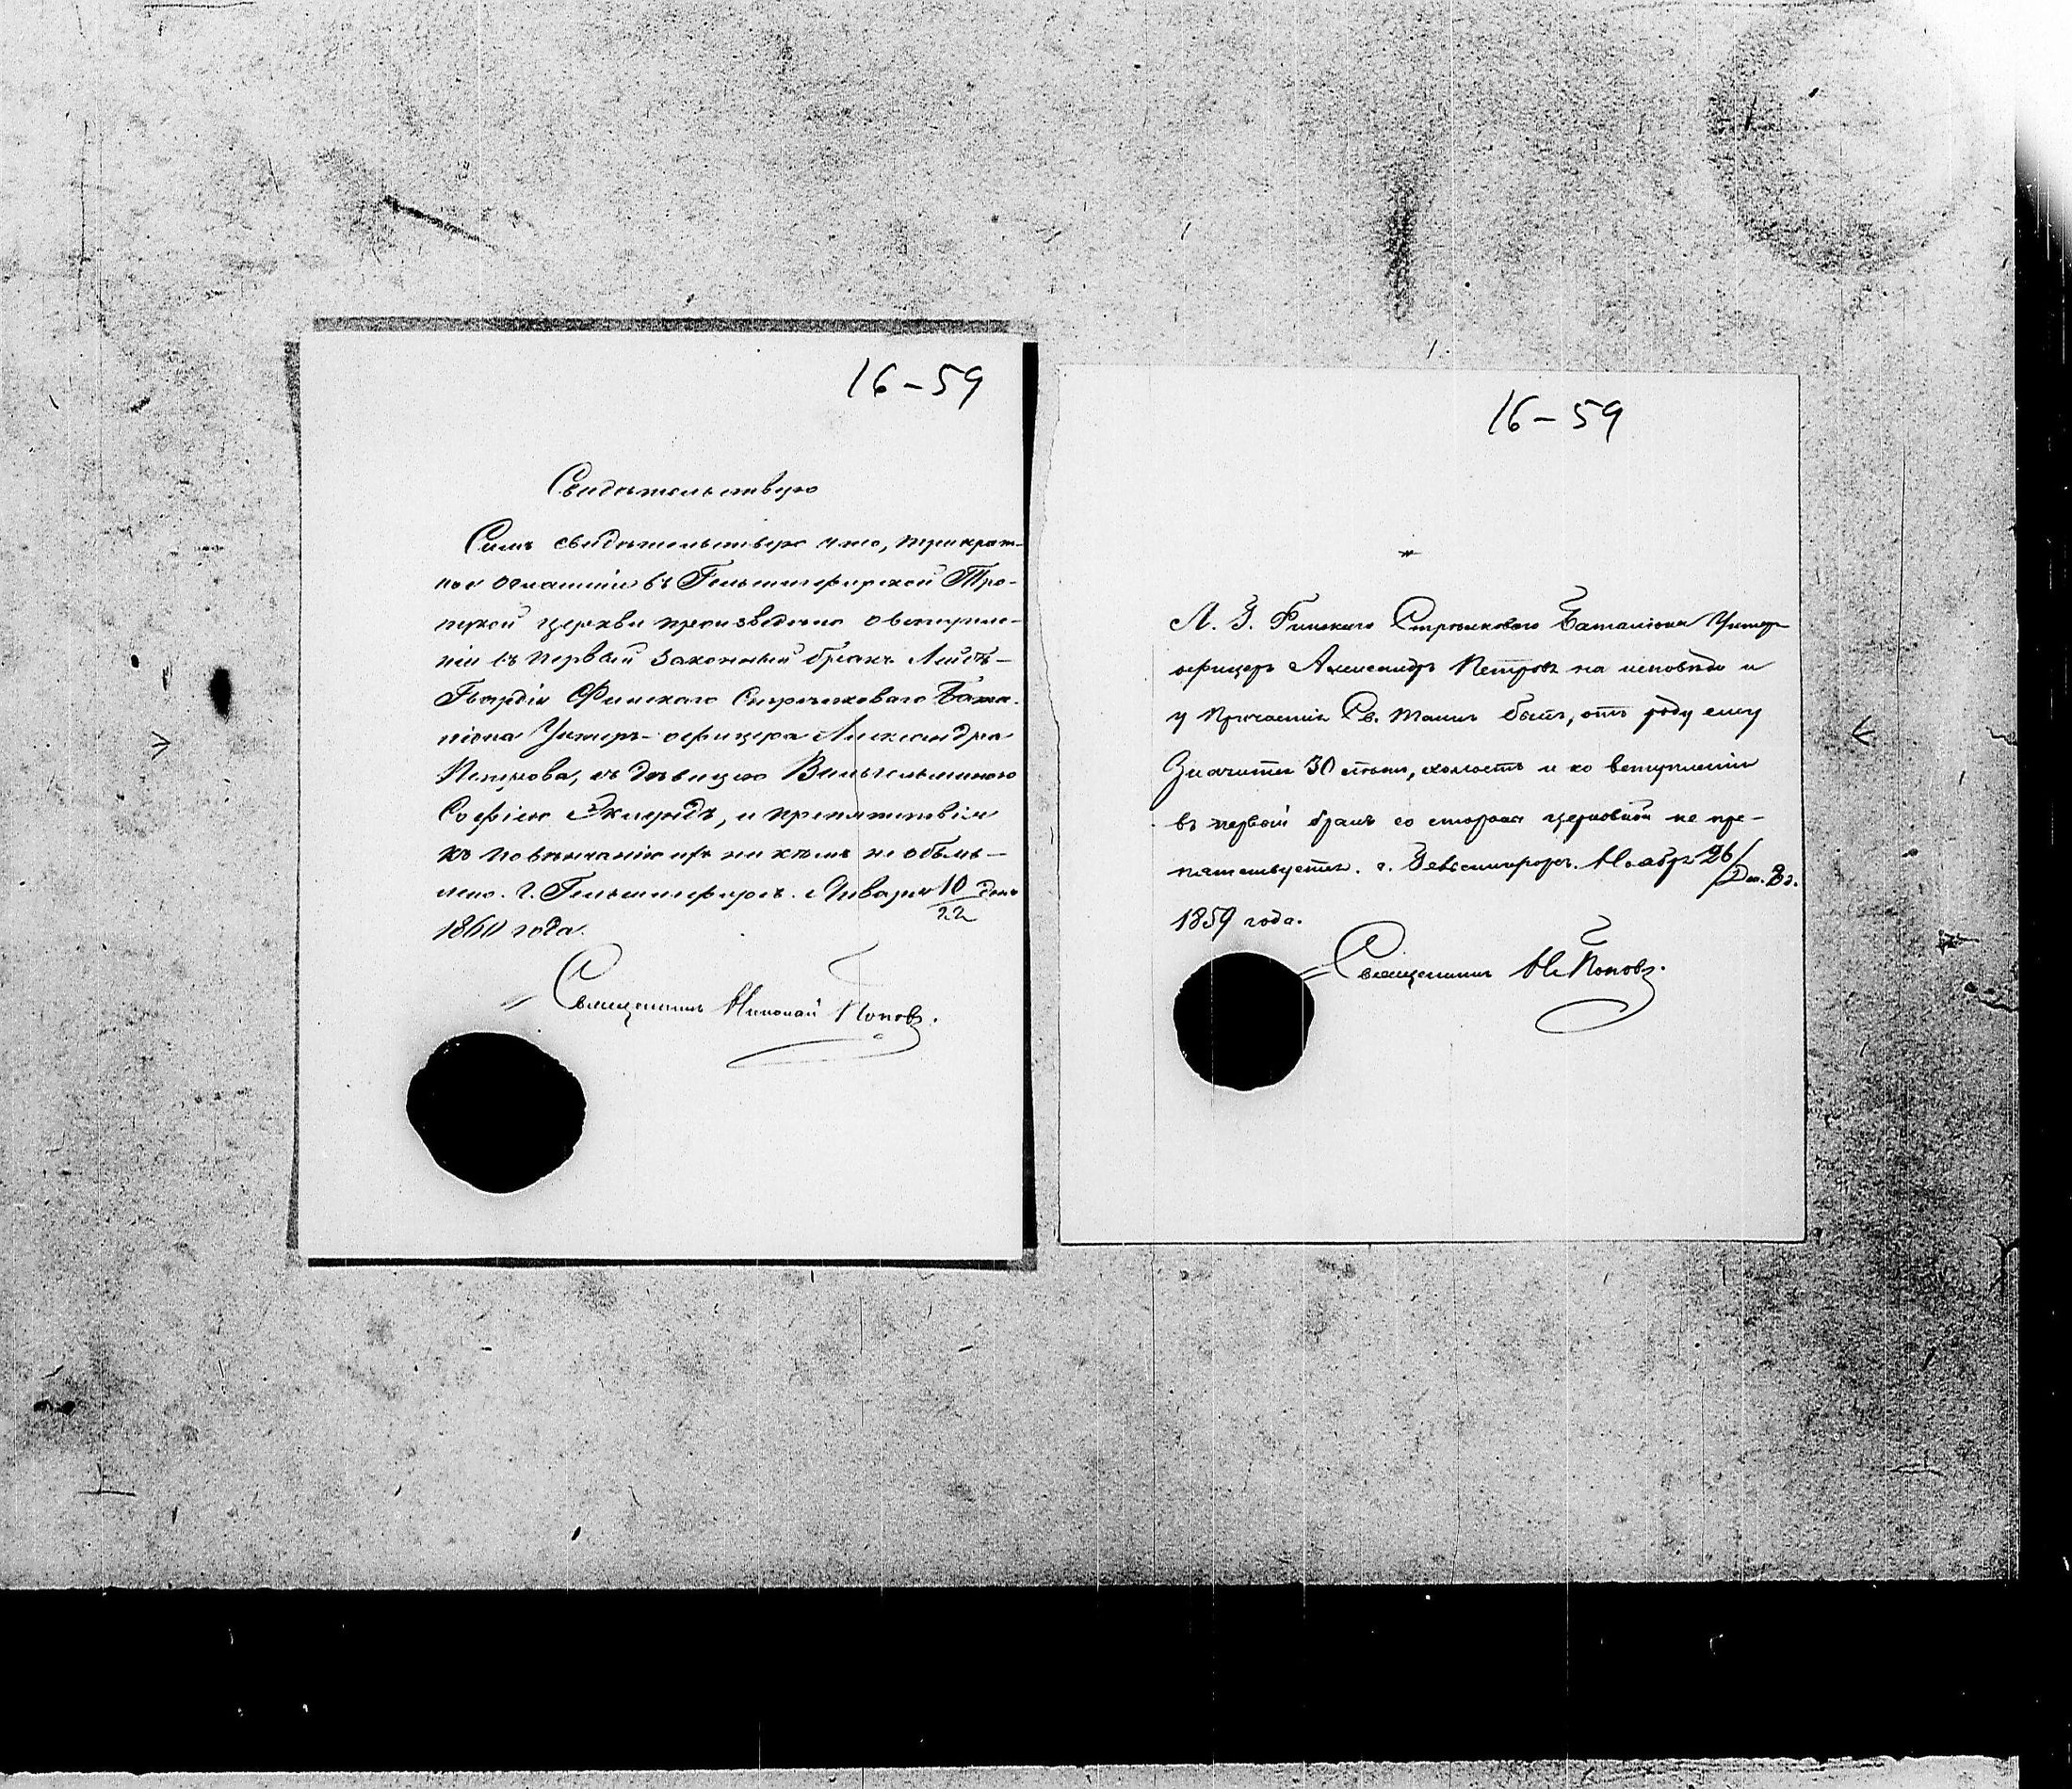 16-59
Свидѣтельствую
Симъ свидѣтельствую что, трикрат-
ное оглашеніе въ Гельсингфорской Тро-
ицкой церкви произведено о вступле-
ніи въ первый законный бракъ Лейбъ-
Гвардіи Финскаго Стрѣлковаго Бата-
ліона Унтеръ-офицера Александра
Петрова, съ дѣвицею Вильгельминою
Софіею Эклундъ, и препятствія
къ повѣнчанію ихъ ни кѣмъ не объяв-
лено. г. Гельсингфорсъ. Января 10/22 дня
1860 года.
Священникъ Николай Поповъ.
16-59
Л. Г. Финскаго Стрѣлковаго Баталіона Унтеръ
офицеръ Александръ Петровъ на исповѣди и
у Причастія Св. Таинъ былъ, отъ роду ему
Значится 30 лѣтъ, холостъ и ко вступленію
въ первый бракъ со стороны церковной не пре-
пятствуется. г. Гельсингфорсъ. Ноября 26/Дек. 8 д.
1859 года.
Священникъ Н. Поповъ.